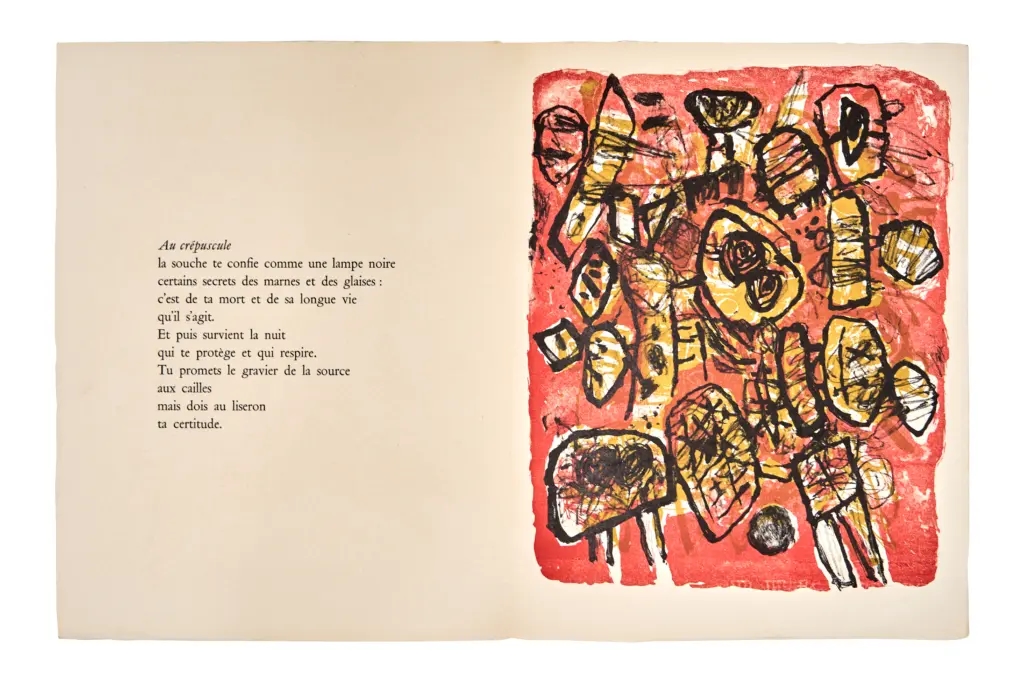 Au crépuscule
la souche te confie comme une lampe noire
certains secrets des marnes et des glaises :
c'est de ta mort et de sa longue vie
qu'il s'agit.
Et puis survient la nuit
qui te protège et qui respire.
Tu promets le gravier de la source
aux cailles
mais dois au liseron
ta certitude.